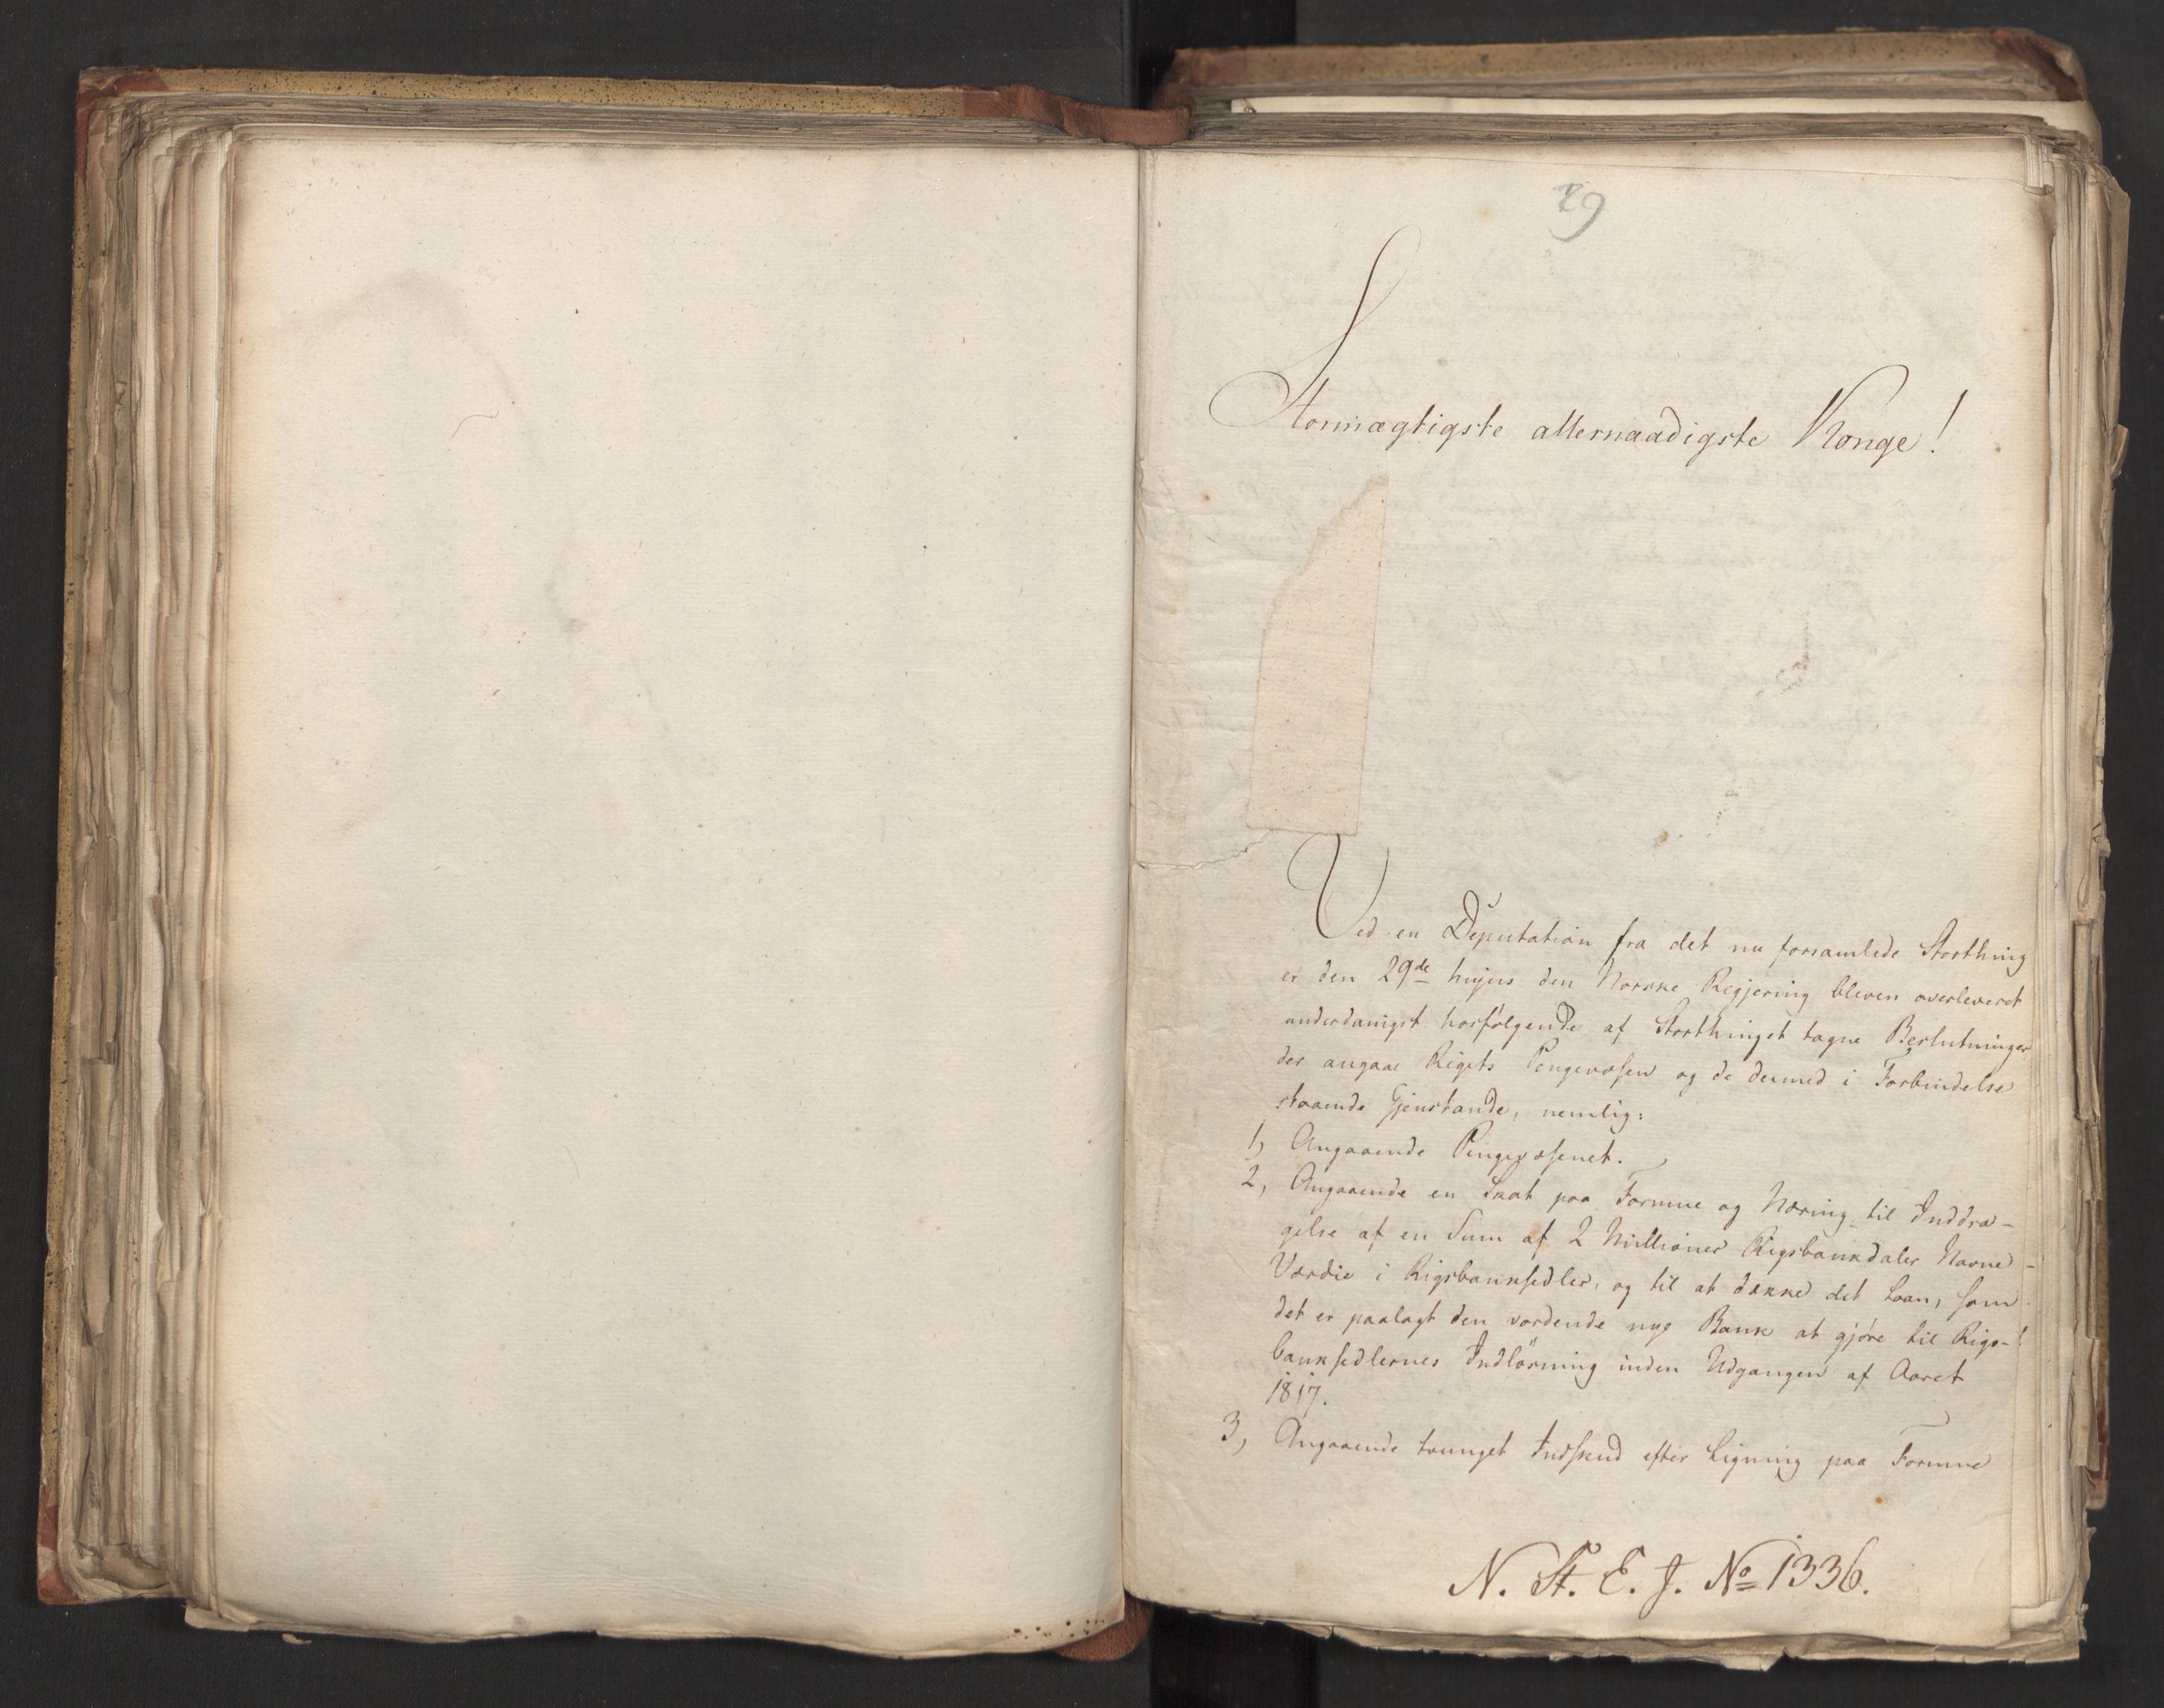 29
Stormægtigste allernaadigste Konge!
Ved en Deputation fra det nu forsamlede Storthing
er den 29de hujus den Norske Regjering bleven overleveret
underdanigst hosfølgende af Storthinget tagne Beslutninger
der angaae Rigets Pengevæsen og de dermed i Forbindelse
staaende Gjenstande, nemlig:
1, Angaaende Pengevæsenet.
2, Angaaende en Skat paa Formue og Næring til Inddra-
gelse af en Sum af 2 Millioner Rigsbankdaler Navne-
Værdie i Rigsbanksedler, og til at dække det Laan, som
det er paalagt den vordende nye Bank at gjøre til Rigs-
banksedlernes Indløsning inden Udgangen af Aaret
1817.
3, Angaaende tvunget Indskud efter Ligning paa Formue
N. St. E. J. No 1336.